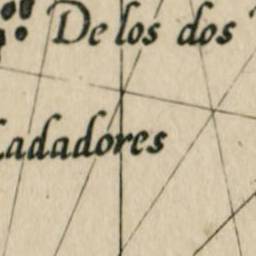 De los dos
Ladadores